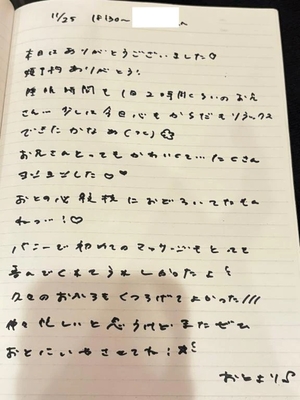 11/25 18:30〜 へ
本日はありがとうございました♡
ありがとう!
時間で1日20時間くらいのおえ
さん… 少しは今日心もからだもリラックス
できたかなぁ
お兄さんとってもかわいくて…たくさん
しました♡
おとの におどろいてたもん
ねっ…!♡
バニーで初めてのマッサージもとって
喜んでくれてうれしかったよ
久々のおふろもくつろげてよかった///
忙しいと思うけどまたぜひ
おとにいやさせてね!
おとより♪